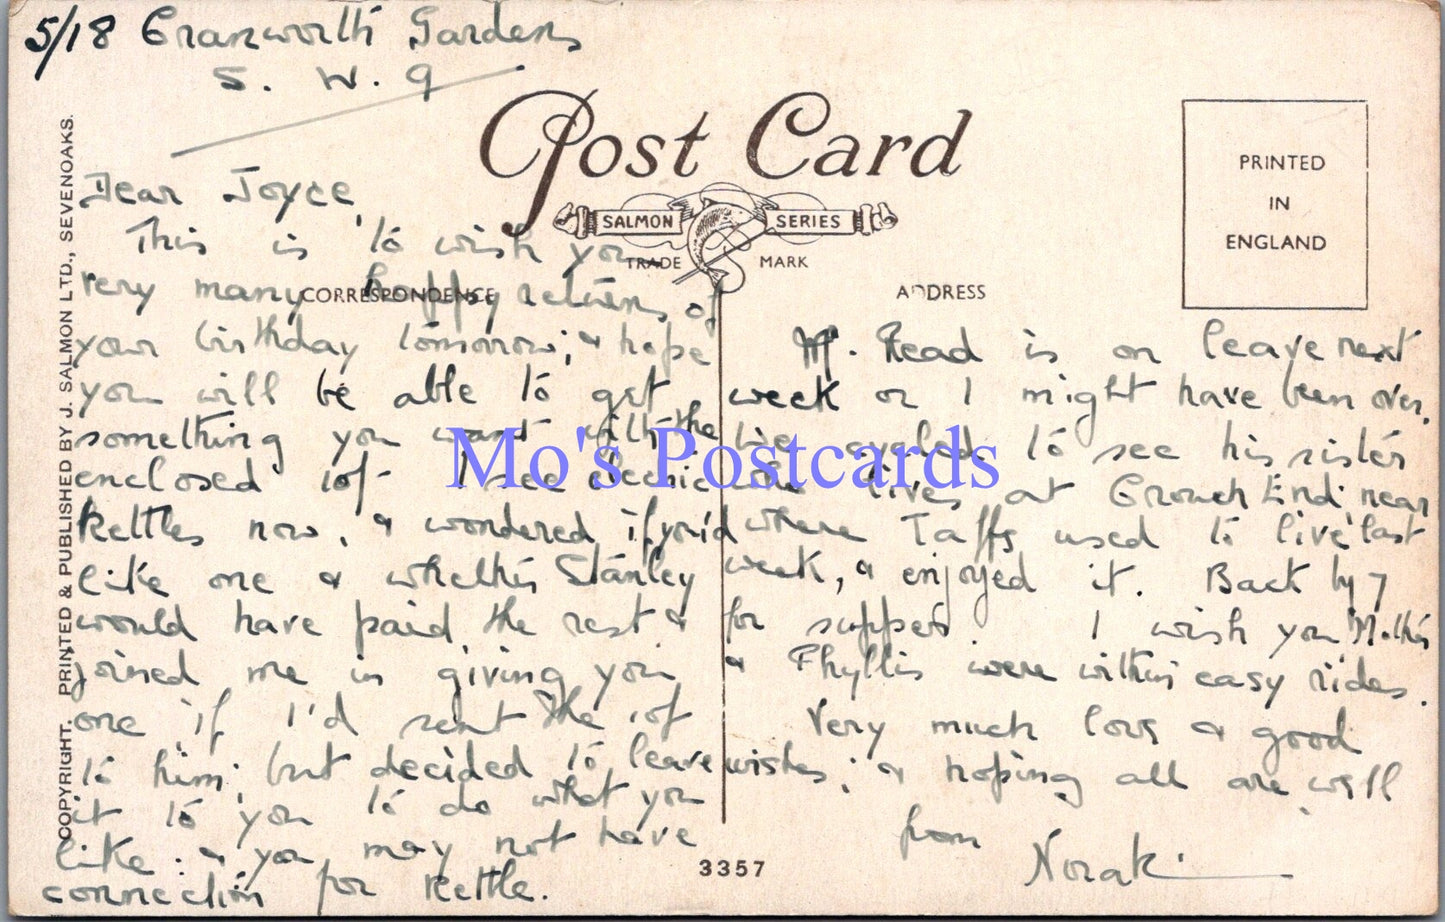 5/18 Cranworth Gardens
S. W. 9
Post Card
SALMON SERIES
TRADE MARK
CORRESPONDENCE
ADDRESS
PRINTED
IN
ENGLAND
COPYRIGHT. PRINTED & PUBLISHED BY J. SALMON LTD., SEVENOAKS.
Dear Joyce,
This is to wish you
very many happy returns of
your birthday tomorrow; & hope
you will be able to get
something you want with the
enclosed 10/- I see electric
kettles now, & wondered if you'd
like one & whether Stanley
would have paid the rest &
joined me in giving you
one if I'd sent the 10/-
to him; but decided to leave
it to you to do what you
like: & you may not have
connection for kettle.
Mr. Read is on leave next
week or I might have been over.
We cycled to see his sister
who lives at Crouch End, near
where Taffs used to live last
week, & enjoyed it. Back by 7
for supper. I wish you Mother
& Phyllis were within easy rides.
Very much love & good
wishes; & hoping all are well
from
Norah
3357
Mo's Postcards